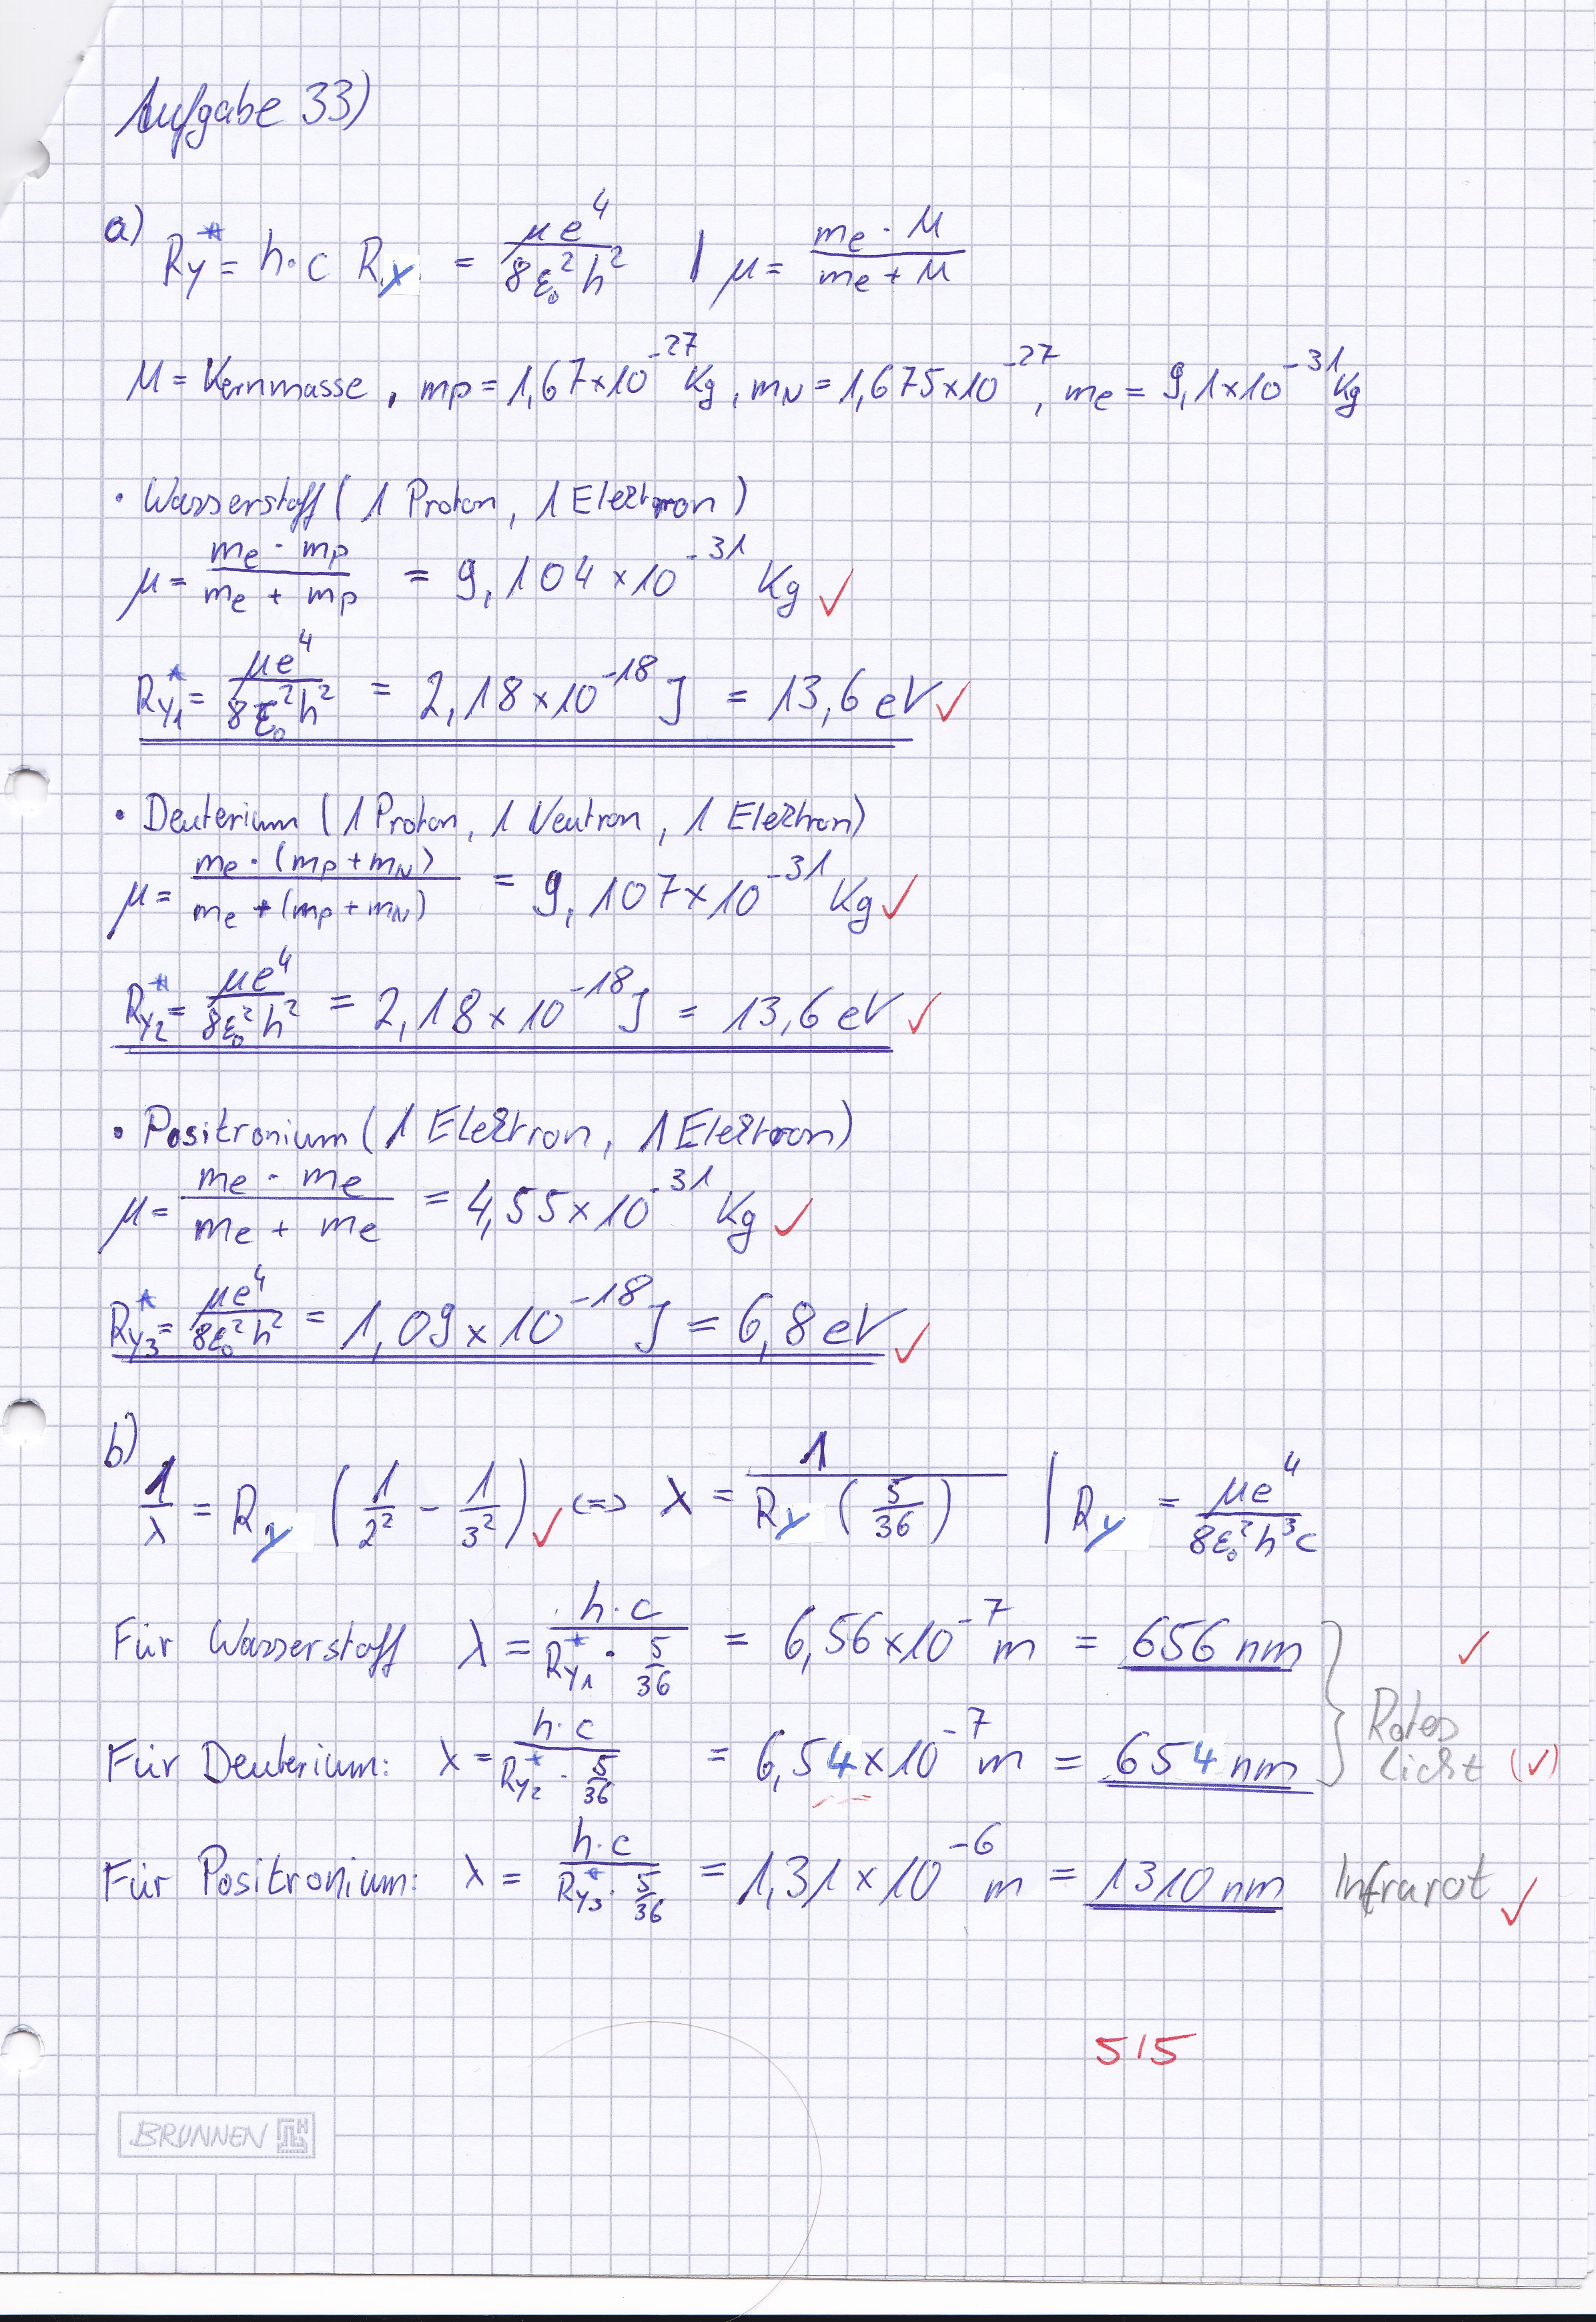 Aufgabe 33)
a) Ry* = h·c Ry = μe⁴/8ε₀²h² | μ = me · M/me + M
M = Kernmasse, mp = 1,67×10⁻²⁷ Kg, mN = 1,675×10⁻²⁷, me = 9,1×10⁻³¹ Kg
• Wasserstoff (1 Proton, 1 Elektron)
μ = me · mp/me + mp = 9,104×10⁻³¹ Kg ✓
Ry₁* = μe⁴/8ε₀²h² = 2,18×10⁻¹⁸ J = 13,6 eV ✓
• Deuterium (1 Proton, 1 Neutron, 1 Elektron)
μ = me · (mp + mN)/me + (mp + mN) = 9,107×10⁻³¹ Kg ✓
Ry₂* = μe⁴/8ε₀²h² = 2,18×10⁻¹⁸ J = 13,6 eV ✓
• Positronium (1 Elektron, 1 Elektron)
μ = me · me/me + me = 4,55×10⁻³¹ Kg ✓
Ry₃* = μe⁴/8ε₀²h² = 1,09×10⁻¹⁸ J = 6,8 eV ✓
b) 1/λ = Ry (1/2² - 1/3²) ✓ <=> λ = 1/Ry (5/36) | Ry = μe⁴/8ε₀²h³c
Für Wasserstoff λ = h·c/Ry₁* · 5/36 = 6,56×10⁻⁷ m = 656 nm ✓
Rotes
Für Deuterium: λ = h·c/Ry₂* · 5/36 = 6,54×10⁻⁷ m = 654 nm Licht (✓)
Für Positronium: λ = h·c/Ry₃* · 5/36 = 1,31×10⁻⁶ m = 1310 nm Infrarot ✓
5/5
BRUNNEN